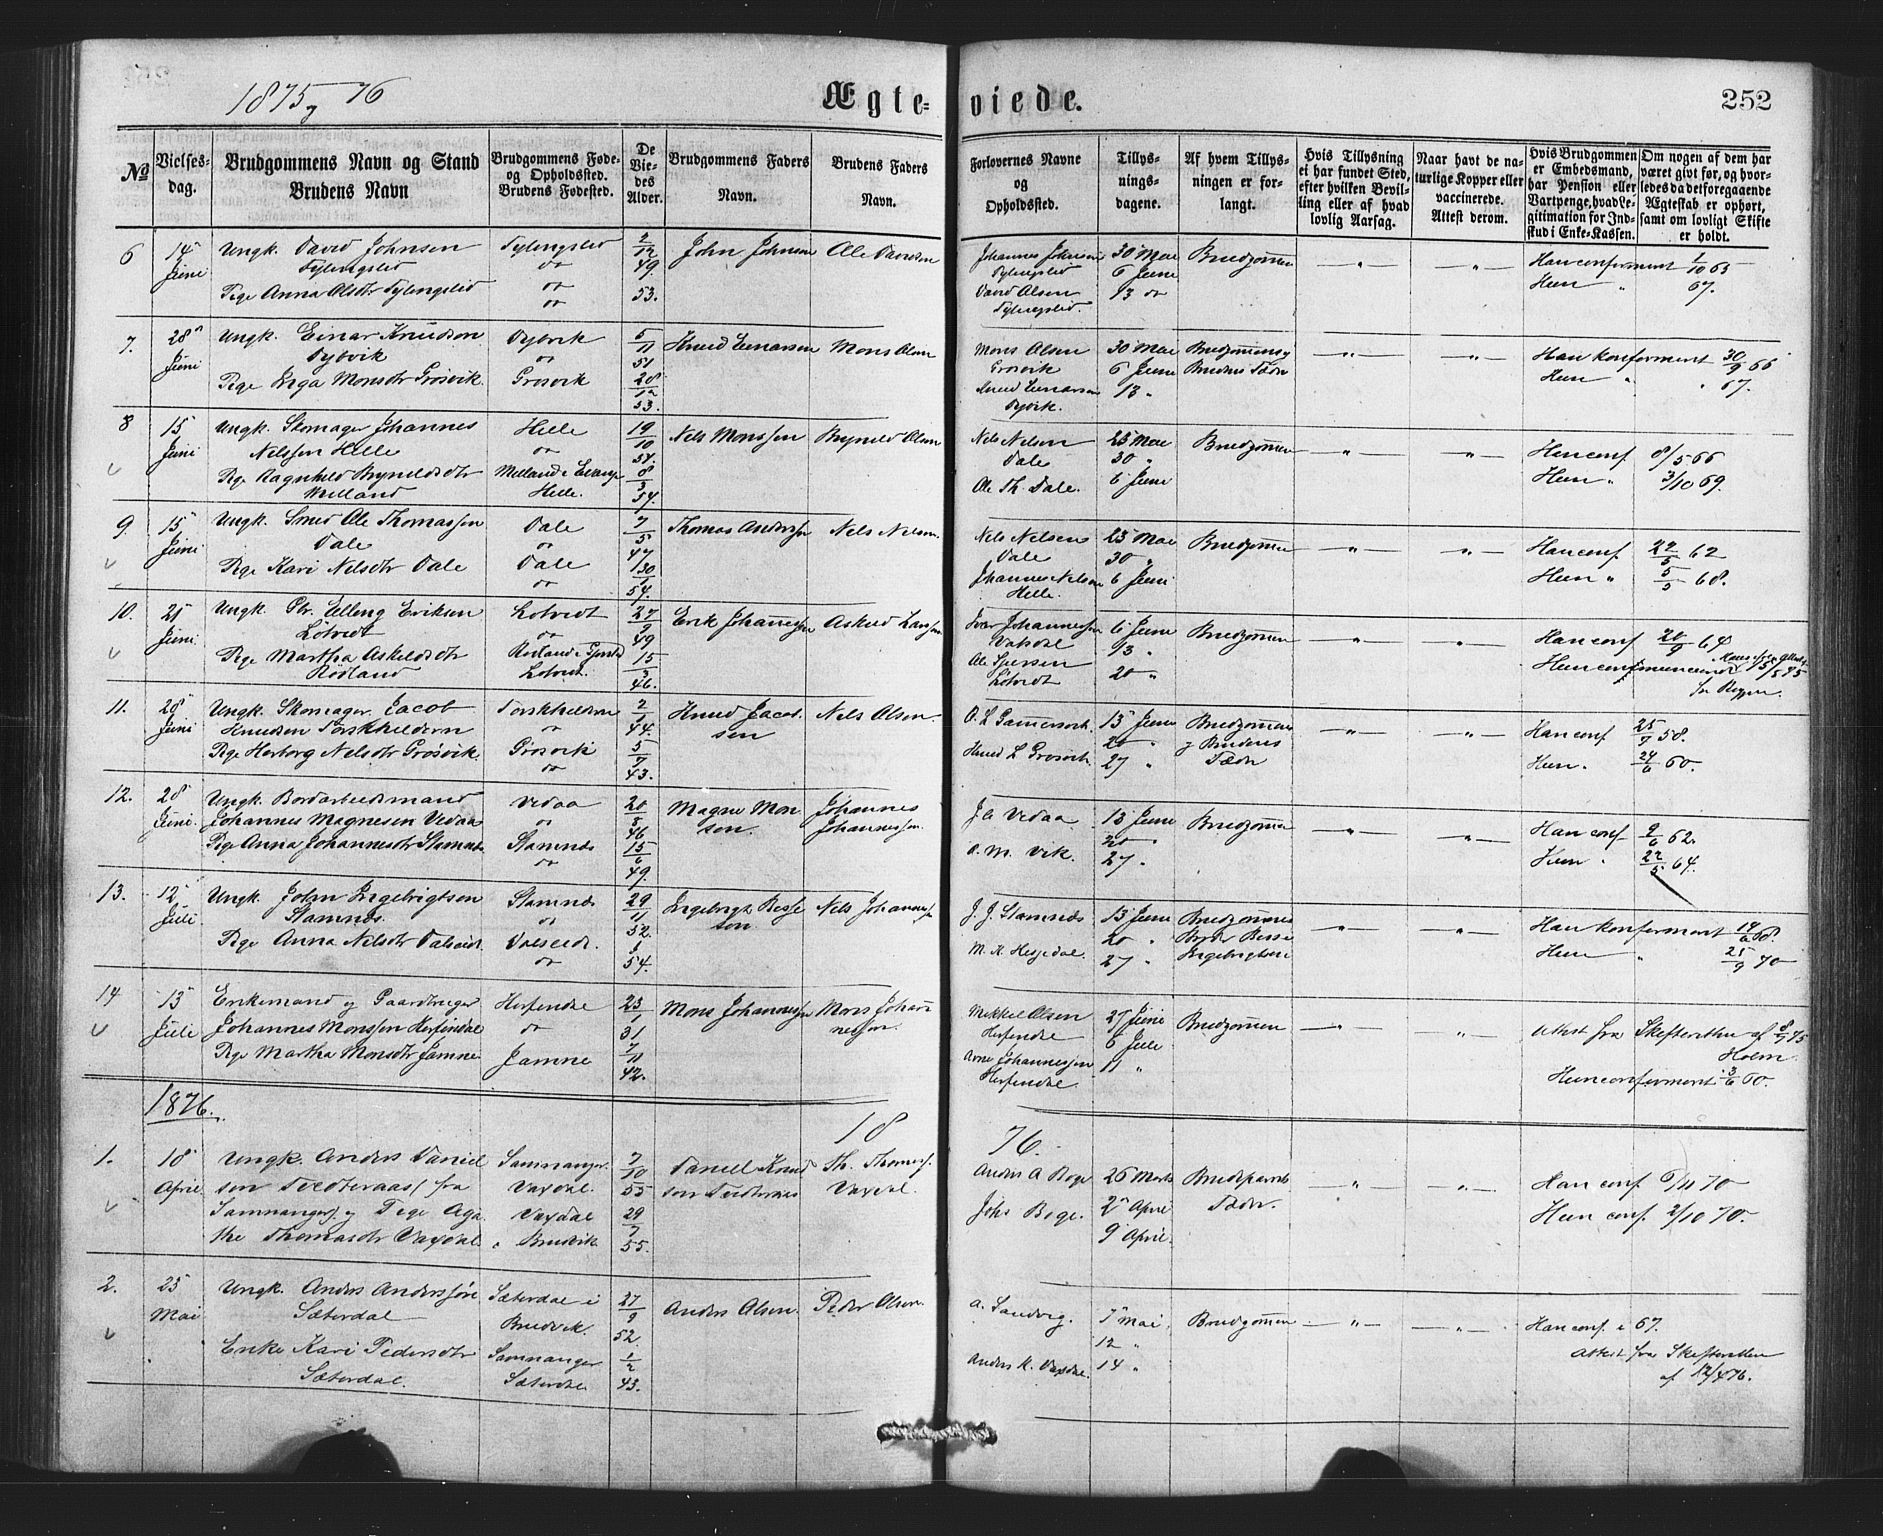 1875 og 76
Ægte-
viede.
252
No
Vielses-
dag.
Brudgommens Navn og Stand
Brudens Navn
Brudgommens Føde-
og Opholdssted.
Brudens Fødested.
De
Vie-
des
Alder.
Brudgommens Faders
Navn.
Brudens Faders
Navn.
Forlovernes Navne
og
Opholdssted.
Tillys-
nings-
dagene.
Af hvem Tillys-
ningen er for-
langt.
Hvis Tillysning
ei har fundet Sted,
efter hvilken Bevil-
ling eller af hvad
lovlig Aarsag.
Naar havt de na-
turlige Kopper eller
vaccinerede.
Attest derom.
Hvis Brudgommen
er Embedsmand,
har Pension eller
Vartpenge, hvad Le-
gitimation for Ind-
skud i Enke-Kassen.
Om nogen af dem har
været givt før, og hvor-
ledes da det foregaaende
Ægteskab er ophørt,
samt om lovligt Skifte
er holdt.
6 14 Juni
Ungk. David Johnsen
Pige Anna Olsdtr
2/12 49
53.
John Johnsen
Ole Davidsen
Johannes Johnsen
David Olsen
30 Mai
6 Juni
13 do
Brudgommen
Han confirmeret 1/10 65
Hun " 67.
7. 28 Juni
Ungk. Einar Knudsen
Dyvik
Pige Inga Monsdtr Grøsvik.
Dyvik
do
Grøsvik
5/11 51
28/12 53.
Knud Einarsen
Mons Olsen
Mons Olsen
Grøsvik
Knud Einarsen
Dyvik.
30 Mai
6 Juni
13 "
Han konfirmeret 30/9 66
Hun " 67.
8 15 Juni
Ungk. Skomager Johannes
Nielssen Helle
Pige Ragnhild Brynildsdtr
Helle
do
Helle.
19/10 51.
8/3 54.
Nels Monssen
Brynild Olsen
Nels Nelsen
Dale
Ole Th. Dale.
25 Mai
30 "
6 Juni
Brudgommen
Han conf. 8/5 66
Hun " 3/10 69.
9. 15 Juni
Ungk. Smed Ole Thomassen
Dale
Pige Kari Nelsdtr Dale
Dale
do
Dale
do
7/5 47
30/1 54.
Thomas Anderssen
Nels Nelsen.
Nels Nelsen
Dale
Johannes Nelsen
Helle
23 Mai
30 "
6 Juni
Brudgommen
Han conf. 22/5 62
Hun " 5/5 68.
10. 21 Juni
Ungk. Elling Eriksen
Løtvedt
Pige Martha Askeldsdtr
Rødland
Løtvedt
do
Løtvedt.
27/9 49
15/3 46.
Erik Johannessen
Askeld Larssen
Ivar Johannessen
Vaksdal
Løtvedt
6 Juni
13 "
20 "
Brudgommen
Han conf 20/9 64
11. 28 Juni
Ungk. Skomager Jacob
Knudsen Torskhelderen
Pige Herborg Nelsdtr Grøsvik.
Torskhelderen
do
Grøsvik
do
2/1 44.
5/7 43.
Knud Jacob-
sen
Nels Olsen.
Knud L Grøsvik.
13 Juni
20 "
27 "
Brudgommens
og Brudens
Fædre
Han conf 25/9 58.
Hun. 24/6 60.
12. 28 Juni.
Ungk. Bordarbeidsmand
Johannes Magnesen Vedaa
Pige Anna Johannesdtr Stamnes
Vedaa
do
Stamnes
do
20/8 46
15/6 49.
Magne Mon-
sen.
Johannes
Johannessen.
Vedaa
O. M. Vik.
13 Juni
20
27 "
Brudgommen
Han conf 9/6 62.
Hun " 22/5 64.
13. 12 Juli
Ungk. John Ingebrigtsen
Stamnes.
Pige Anna Nelsdtr Dalseid.
Stamnes
do
Dalseid.
do
29/11 52.
54.
Ingebrigt Besse-
sen
Nels Johannessen
J. J. Stamnes
M. K. Hesjedal.
13 Juni
20 "
27 "
Brudgommens
Ingebrigtsen
Han konfirmeret 14/6 68.
Hun " 25/9 70
14 13 Juli
Enkemand og Gaardbruger
Johannes Monssen Herfindal
Pige Martha Monsdtr Jamne
Herfindal
do
Jamne
23/1 31
7/11 42.
Mons Johannessen
Mons Johan-
nessen.
Mikkel Olsen
Herfindal
Arne Johannessen
Herfindal
27 Juni
6 Juli
11 "
Brudgommen
Attest fra Skifteretten af
Holm.
Hun confirmeret 3/6 60.
1876.
18 76.
1. 18 April
Ungk. Anders Daniel-
sen Tveiteraas fra
Samnanger og Pige Aga-
the Thomasdtr Vaxdal.
Samnanger.
Vaxdal.
Vaxdal
Bruvik
7/10 55
29/7 55.
Daniel Knud-
sen Tveiteraas
Th. Thomass.
Vaxdal.
Anders A Boge
Johs Boge.
26 Marts
2 April
9 April.
Brudeparrets
Fædre.
Han conf 6/11 70
Hun conf. 2/10 70.
2. 25 Mai
Ungk. Anders Anderssøn
Sæterdal
Enke Kari Pedersdtr
Sæterdal.
Sæterdal i
Bruvik.
Samnanger
Sæterdal
27/9 52.
1/2 43.
Anders Olsen.
Peder Olsen.
A. Sandvig.
Anders K. Vaxdal.
7 Mai
12 "
14 "
Brudgommen
Han conf. i 67.
Attest fra Skifteretten
af 12/4 76.